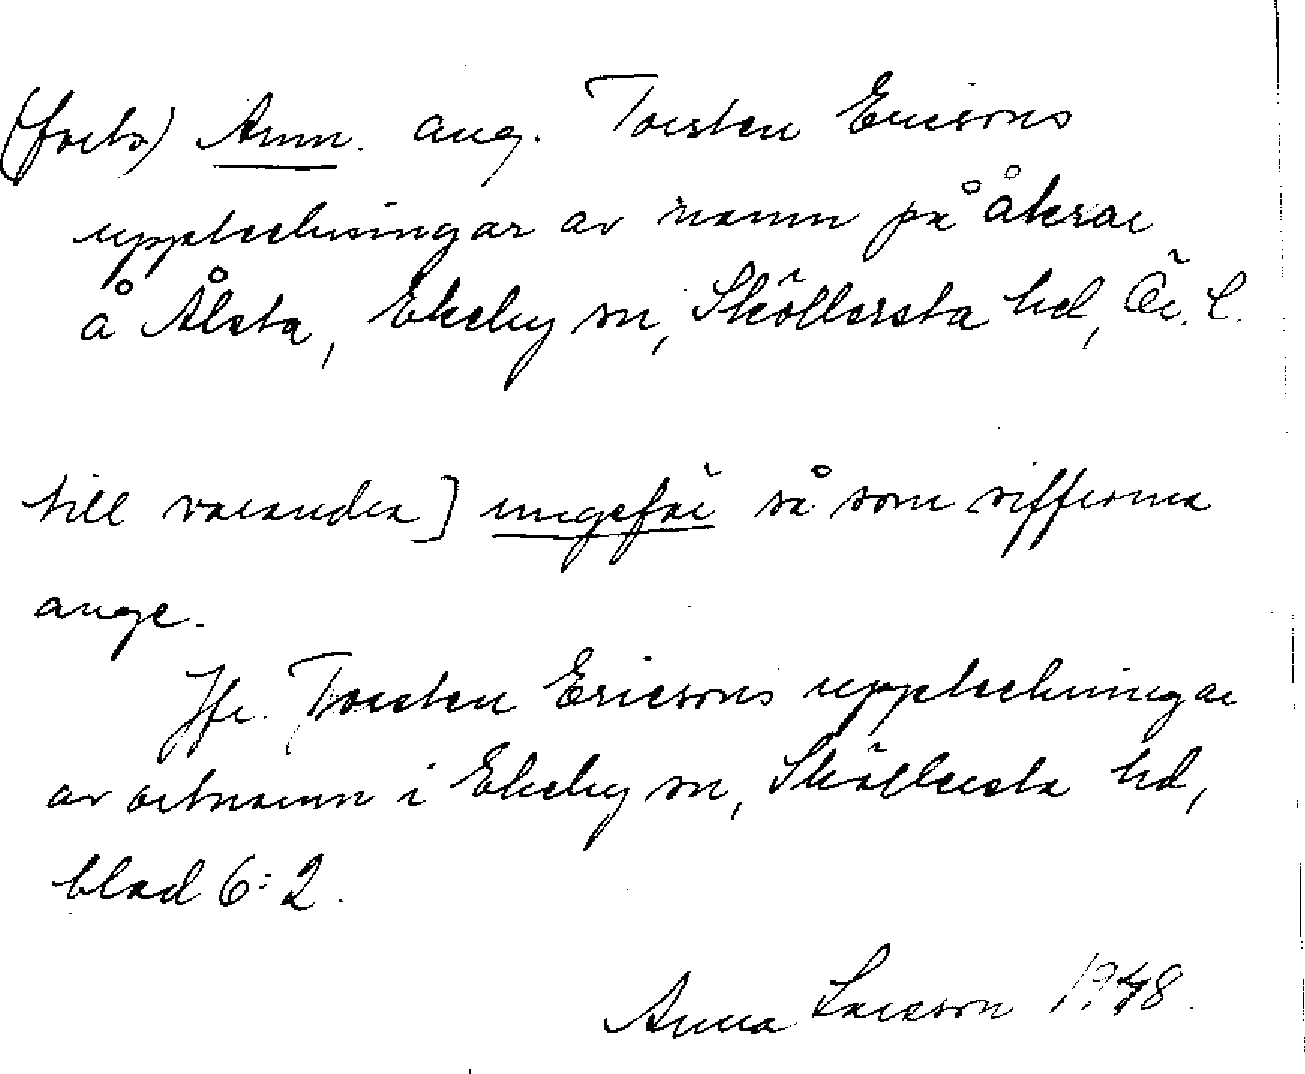 (forts) Anm. ang. Torsten Ericsons
uppteckningar av namn på åkrar
å Ålsta, Ekeby sn, Sköllersta hd, Ör. l.
till varandra] ungefär så som siffrorna
ange.
Jfr. Torsten Ericsons uppteckningar
av ortnamn i Ekeby sn, Sköllersta hd,
blad 6:2.
Anna Larsson 1948.